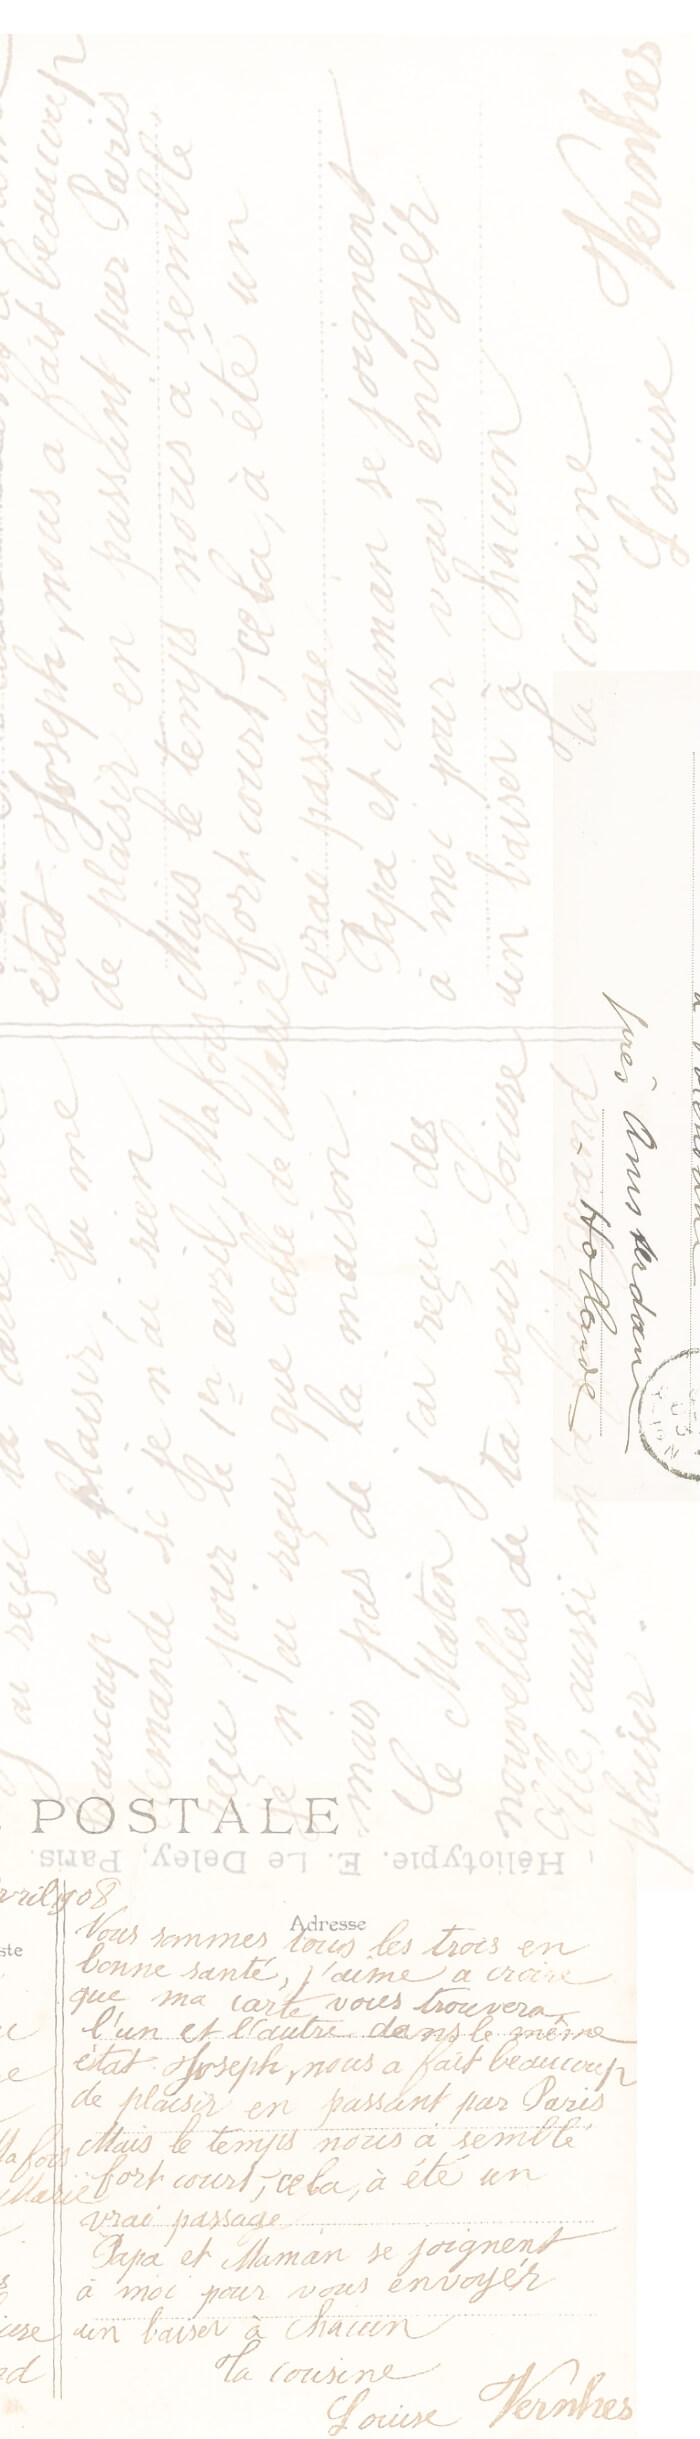 ai reçu ta carte
aucoup de plaisir. Tu me
emande si je n'ai rien
eçu pour le 1er avril, Ma fois
je n'ai reçu que celle de Marie
mais pas de la maison.
Le Matin j'ai reçu des
nouvelles de ta sœur Louise
Elle, aussi m'a
plaisir.
état Joseph, nous a fait beaucoup
de plaisir en passant par Paris
Mais le temps nous a semblé
fort court, cela, à été un
vrai passage
Papa et Maman se joignent
à moi pour vous envoyér
un baiser à chacun
Ta cousine
Louise Vernhes
près Amsterdam
Hollande
POSTALE
Héliotypie. E. Le Deley, Paris.
vril 1908
Adresse
ste
Nous sommes tous les trois en
bonne santé, j'aime a croire
que ma carte vous trouvera
l'un et l'autre dans le même
état Joseph, nous a fait beaucoup
de plaisir en passant par Paris
Ma fois Mais le temps nous a semblé
Marie fort court, cela, à été un
vrai passage
Papa et Maman se joignent
à moi pour vous envoyér
un baiser à chacun
Ta cousine
Louise Vernhes